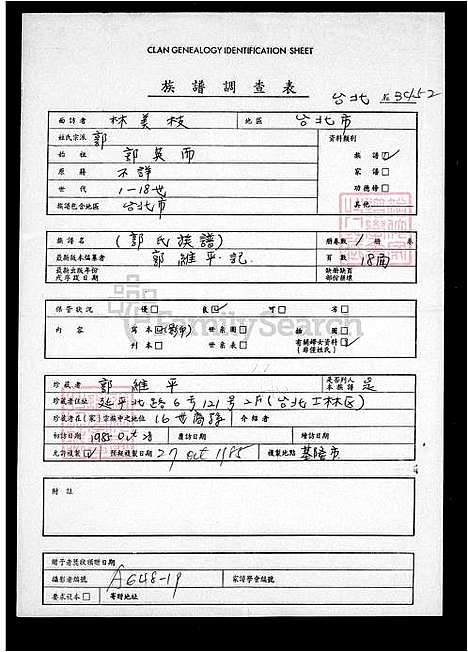 CLAN GENEALOGY IDENTIFICATION SHEET
族譜調查表
台北
面訪者 林美枝 地區 台北市
姓氏宗派 郭 資料類別
始祖 郭 族譜
原籍 不詳 家譜
世代 1-18世 功德榜
族譜包含地區 台北市 其他
族譜名 (郭氏族譜) 冊卷數 1 冊 卷
最新版本編纂者 郭維平 記 頁數 18面
最新出版年份
或序跋日期
缺冊缺頁
部份損壞
保管狀況 優 良 可 劣
內容 寫本 (影印) 世系圖 插圖
刊本 世系表 有關婦女資料
(非僅姓氏)
珍藏者 郭維平 是否列入
本族譜 是
珍藏者住址 延平北路6号121号2F(台北士林区)
珍藏者在(家)宗族中之地位 16世裔孫 介紹者
初訪日期 1985 Oct 覆訪日期 續訪日期
允許複製 預擬複製日期 27 Oct 1985 複製地點 基隆市
附註
贈予者獎狀頒贈日期
攝影者編號 A648-19 家譜學會編號
要求從本 寄贈地址
FamilySearch